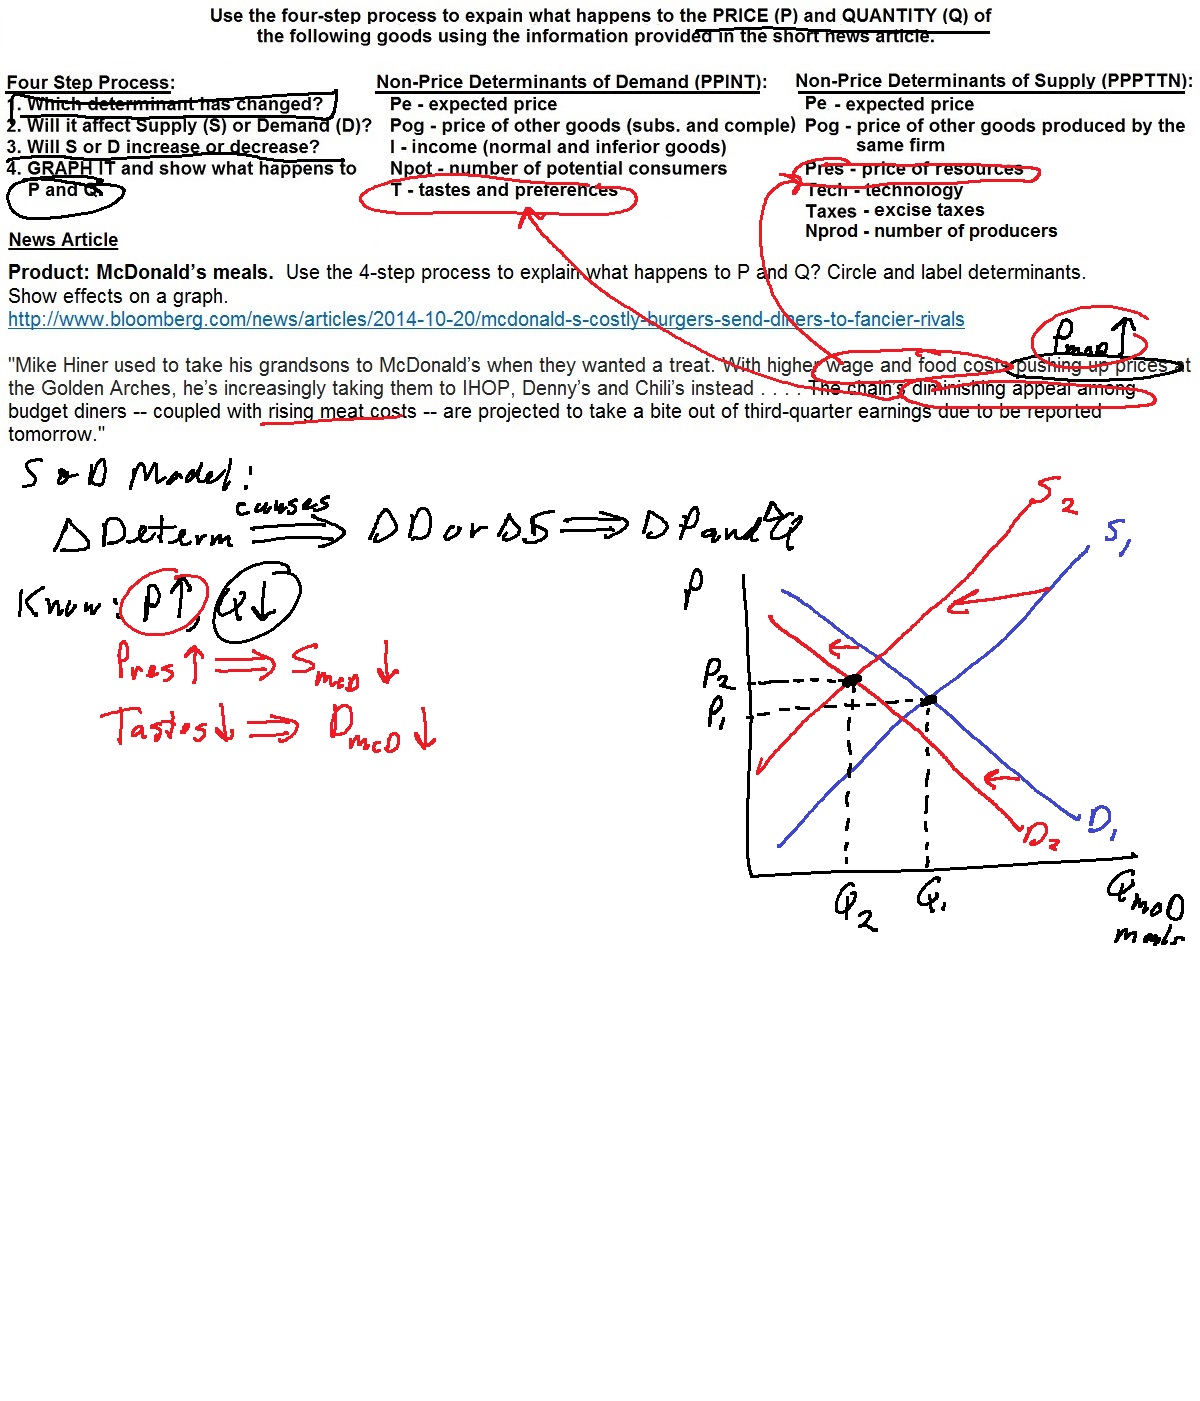 Use the four-step process to expain what happens to the PRICE (P) and QUANTITY (Q) of
the following goods using the information provided in the short news article.
Four Step Process:
1. Which determinant has changed?
2. Will it affect Supply (S) or Demand (D)?
3. Will S or D increase or decrease?
4. GRAPH IT and show what happens to
P and Q.
Non-Price Determinants of Demand (PPINT):
Pe - expected price
Pog - price of other goods (subs. and comple)
I - income (normal and inferior goods)
Npot - number of potential consumers
T - tastes and preferences
Non-Price Determinants of Supply (PPPTTN):
Pe - expected price
Pog - price of other goods produced by the
same firm
Pres - price of resources
Tech - technology
Taxes - excise taxes
Nprod - number of producers
News Article
Product: McDonald's meals. Use the 4-step process to explain what happens to P and Q? Circle and label determinants.
Show effects on a graph.
http://www.bloomberg.com/news/articles/2014-10-20/mcdonald-s-costly-burgers-send-diners-to-fancier-rivals
PmcD ↑
"Mike Hiner used to take his grandsons to McDonald's when they wanted a treat. With higher wage and food costs pushing up prices at
the Golden Arches, he's increasingly taking them to IHOP, Denny's and Chili's instead . . . . The chain's diminishing appeal among
budget diners -- coupled with rising meat costs -- are projected to take a bite out of third-quarter earnings due to be reported
tomorrow."
S & D Model:
Δ Determ causes ⇒ Δ D or Δ S ⇒ Δ P and Δ Q
Know: P↑, Q↓
Pres ↑ ⇒ SmcD ↓
Tastes ↓ ⇒ DmcD ↓
S2
S1
P
P2
P1
D1
D2
Q2
Q1
QmcD
meals